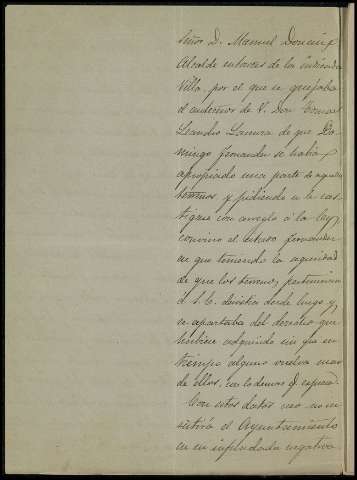 Señor D. Manuel
Alcalde entonces de la indicada
Villa, por el que se quejaba
el antecesor de V. Don
Leandro de que Do-
mingo Fernandez se habia
apropiado una parte de aquellos
terrenos, y pidiendo se le cas-
tigue con arreglo á la ley,
convino el Fernandez
en que teniendo la seguridad
de que los terrenos pertenecian
á S. E. desistia desde luego y
se apartaba del derecho que
hubiese adquirido sin que en
tiempo alguno vuelva usar
de ellos, con lo demas q. espresa.
Con estos datos creo no in-
sistirá el Ayuntamiento
en su infundada negativa